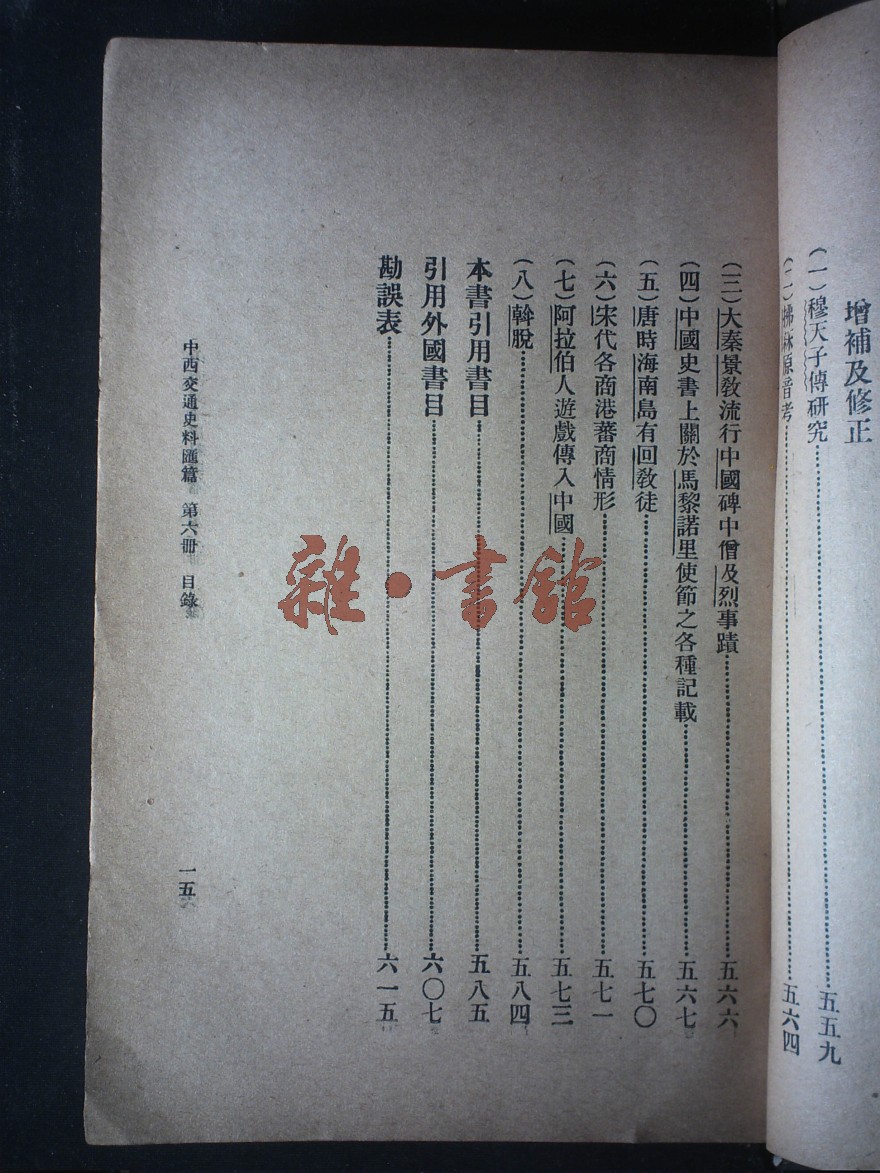 增補及修正
(一)穆天子傳研究…………五五九
(二)拂菻原音考…………五六四
(三)大秦景教流行中國碑中僧及烈事蹟…………五六六
(四)中國史書上關於馬黎諾里使節之各種記載…………五六七
(五)唐時海南島有回教徒…………五七〇
(六)宋代各商港蕃商情形…………五七一
(七)阿拉伯人遊戲傳入中國…………五七三
(八)斡脫…………五八四
本書引用書目…………五八五
引用外國書目…………六〇七
勘誤表…………六一五
中西交通史料匯篇 第六冊 目錄
一五
雜·書館